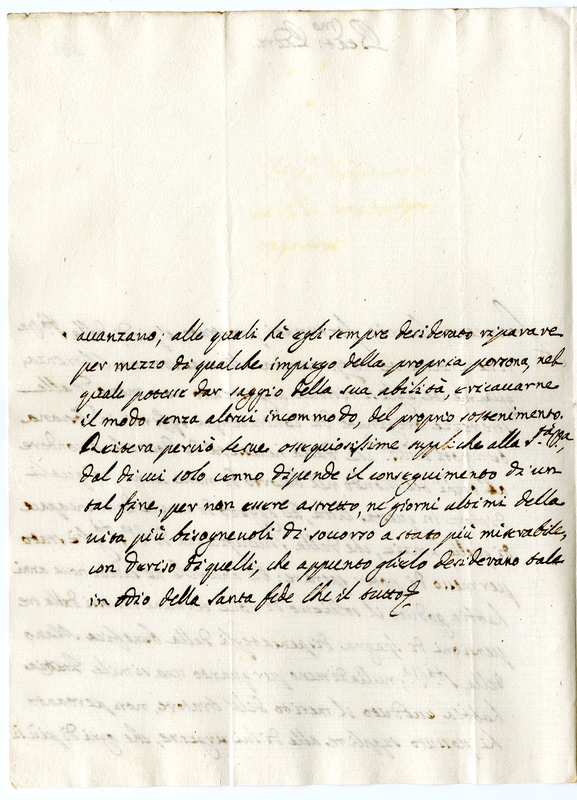 auanzano; alle quali hà egli sempre desiderato riparare
per mezzo di qualche impiego della propria persona, nel
quale potesse dar saggio della sua abilità, e ricauarne
il modo senza altrui incommodo, del proprio sostenimento.
Reitera perciò le sue ossequiosissime suppliche alla S.tà V.ra
dal di cui solo cenno dipende il conseguimento di un
tal fine, per non essere astretto, ne giorni ultimi della
uita più bisogneuoli di socorso a stato più miserabile,
con deriso di quelli, che appunto glielo desiderano tale
in odio della santa fede che il tutto